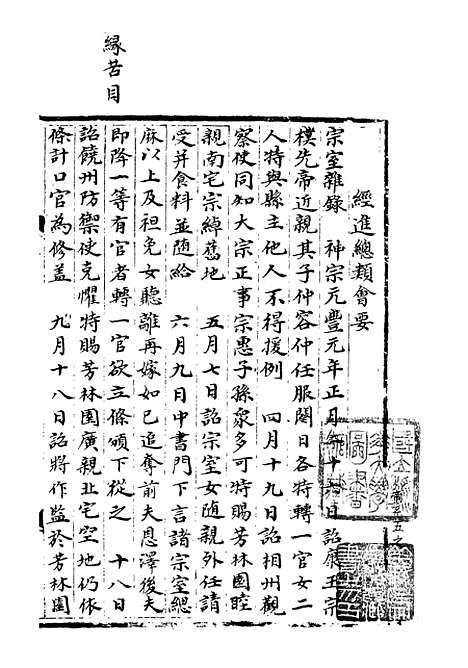 緣苦目
經進總類會要
宗室雜錄　神宗元豐元年正月年十六日詔康王宗
樸先帝近親其子仲容仲任服闋日各特轉一官女二
人特與縣主他人不得援例　四月十九日詔相州觀
察使同知大宗正事宗惠子孫衆多可特賜芳林園睦
親南宅宗綽舊地　五月七日詔宗室女隨親外任請
受并食料並隨給　六月九日中書門下言諸宗室緦
麻以上及袒免女聽離再嫁如已追奪前夫恩澤後夫
即降一等有官者轉一官欲立條頒下從之　十八日
詔饒州防禦使克懼特賜芳林園廣親北宅空地仍依
條計口官為修蓋　九月十八日詔將作監於芳林園